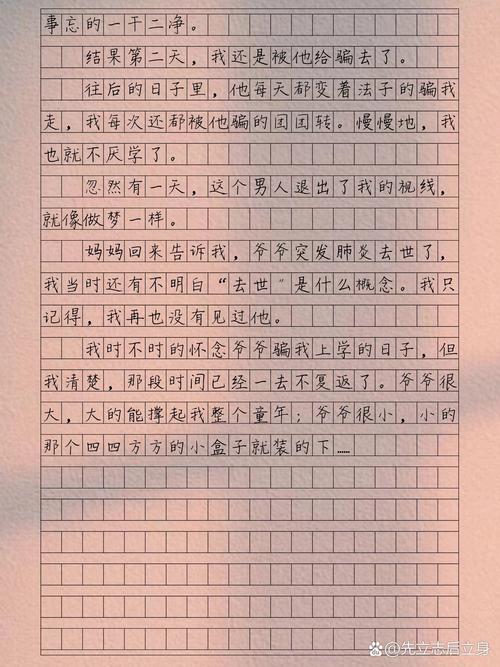 事忘的一干二净。
结果第二天，我还是被他给骗去了。
往后的日子里，他每天都变着法子的骗我
走，我每次还都被他骗的团团转。慢慢地，我
也就不厌学了。
忽然有一天，这个男人退出了我的视线，
就像做梦一样。
妈妈回来告诉我，爷爷突发肺炎去世了，
我当时还有不明白“去世”是什么概念。我只
记得，我再也没有见过他。
我时不时的怀念爷爷骗我上学的日子，但
我清楚，那段时间已经一去不复返了。爷爷很
大，大的能撑起我整个童年；爷爷很小，小的
那个四四方方的小盒子就装的下……
@先立志后立身